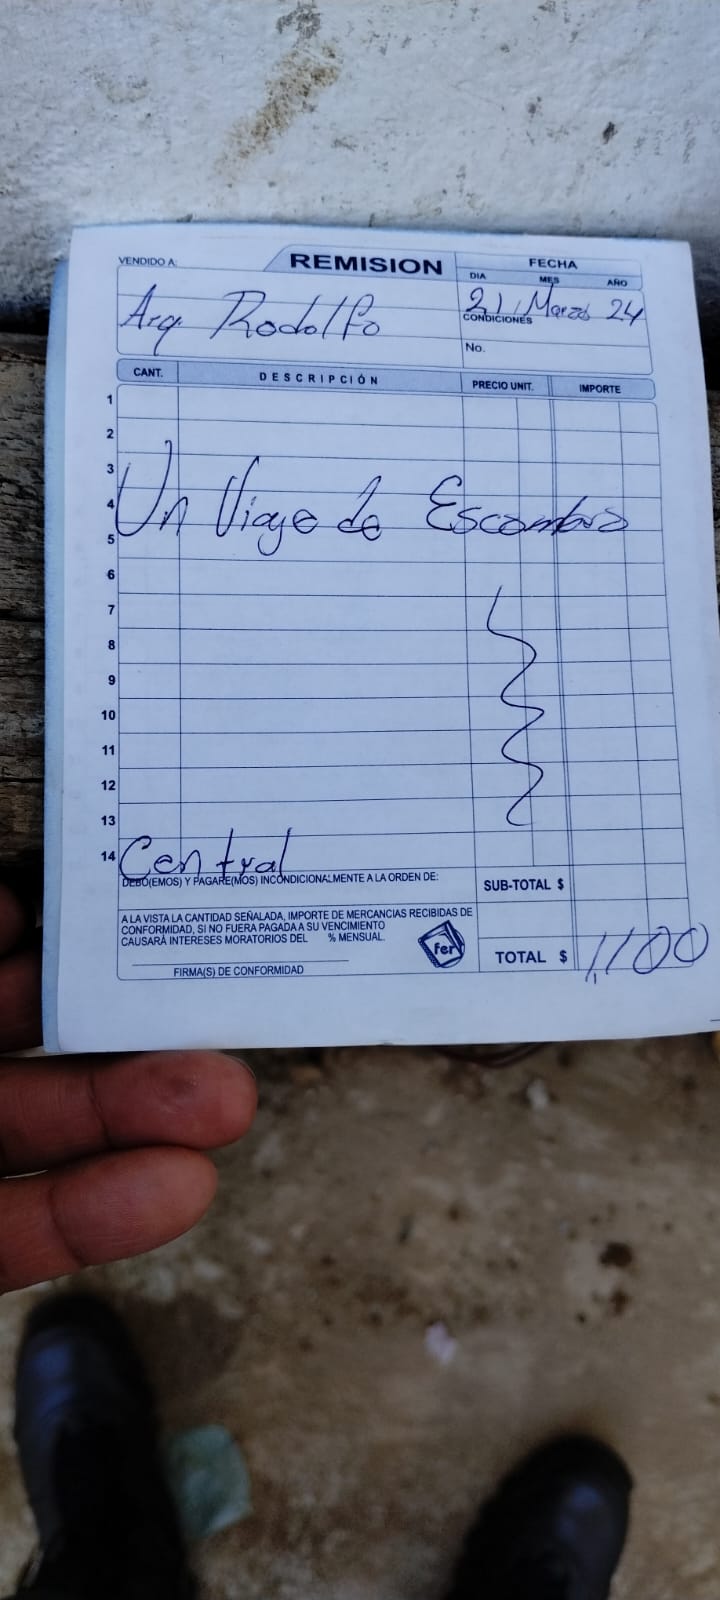 VENDIDO A:
REMISION
FECHA
DIA MES AÑO
Arq. Rodolfo
21 Marzo 24
CONDICIONES
No.
CANT. DESCRIPCIÓN PRECIO UNIT. IMPORTE
1
2
3
4
Un Viaje de Escombro
5
6
7
8
9
10
11
12
13
14
Central
DEBO(EMOS) Y PAGARE(MOS) INCONDICIONALMENTE A LA ORDEN DE:
SUB-TOTAL $
A LA VISTA LA CANTIDAD SEÑALADA, IMPORTE DE MERCANCIAS RECIBIDAS DE
CONFORMIDAD, SI NO FUERA PAGADA A SU VENCIMIENTO
CAUSARÁ INTERESES MORATORIOS DEL % MENSUAL.
fer
TOTAL $ 1,100
FIRMA(S) DE CONFORMIDAD